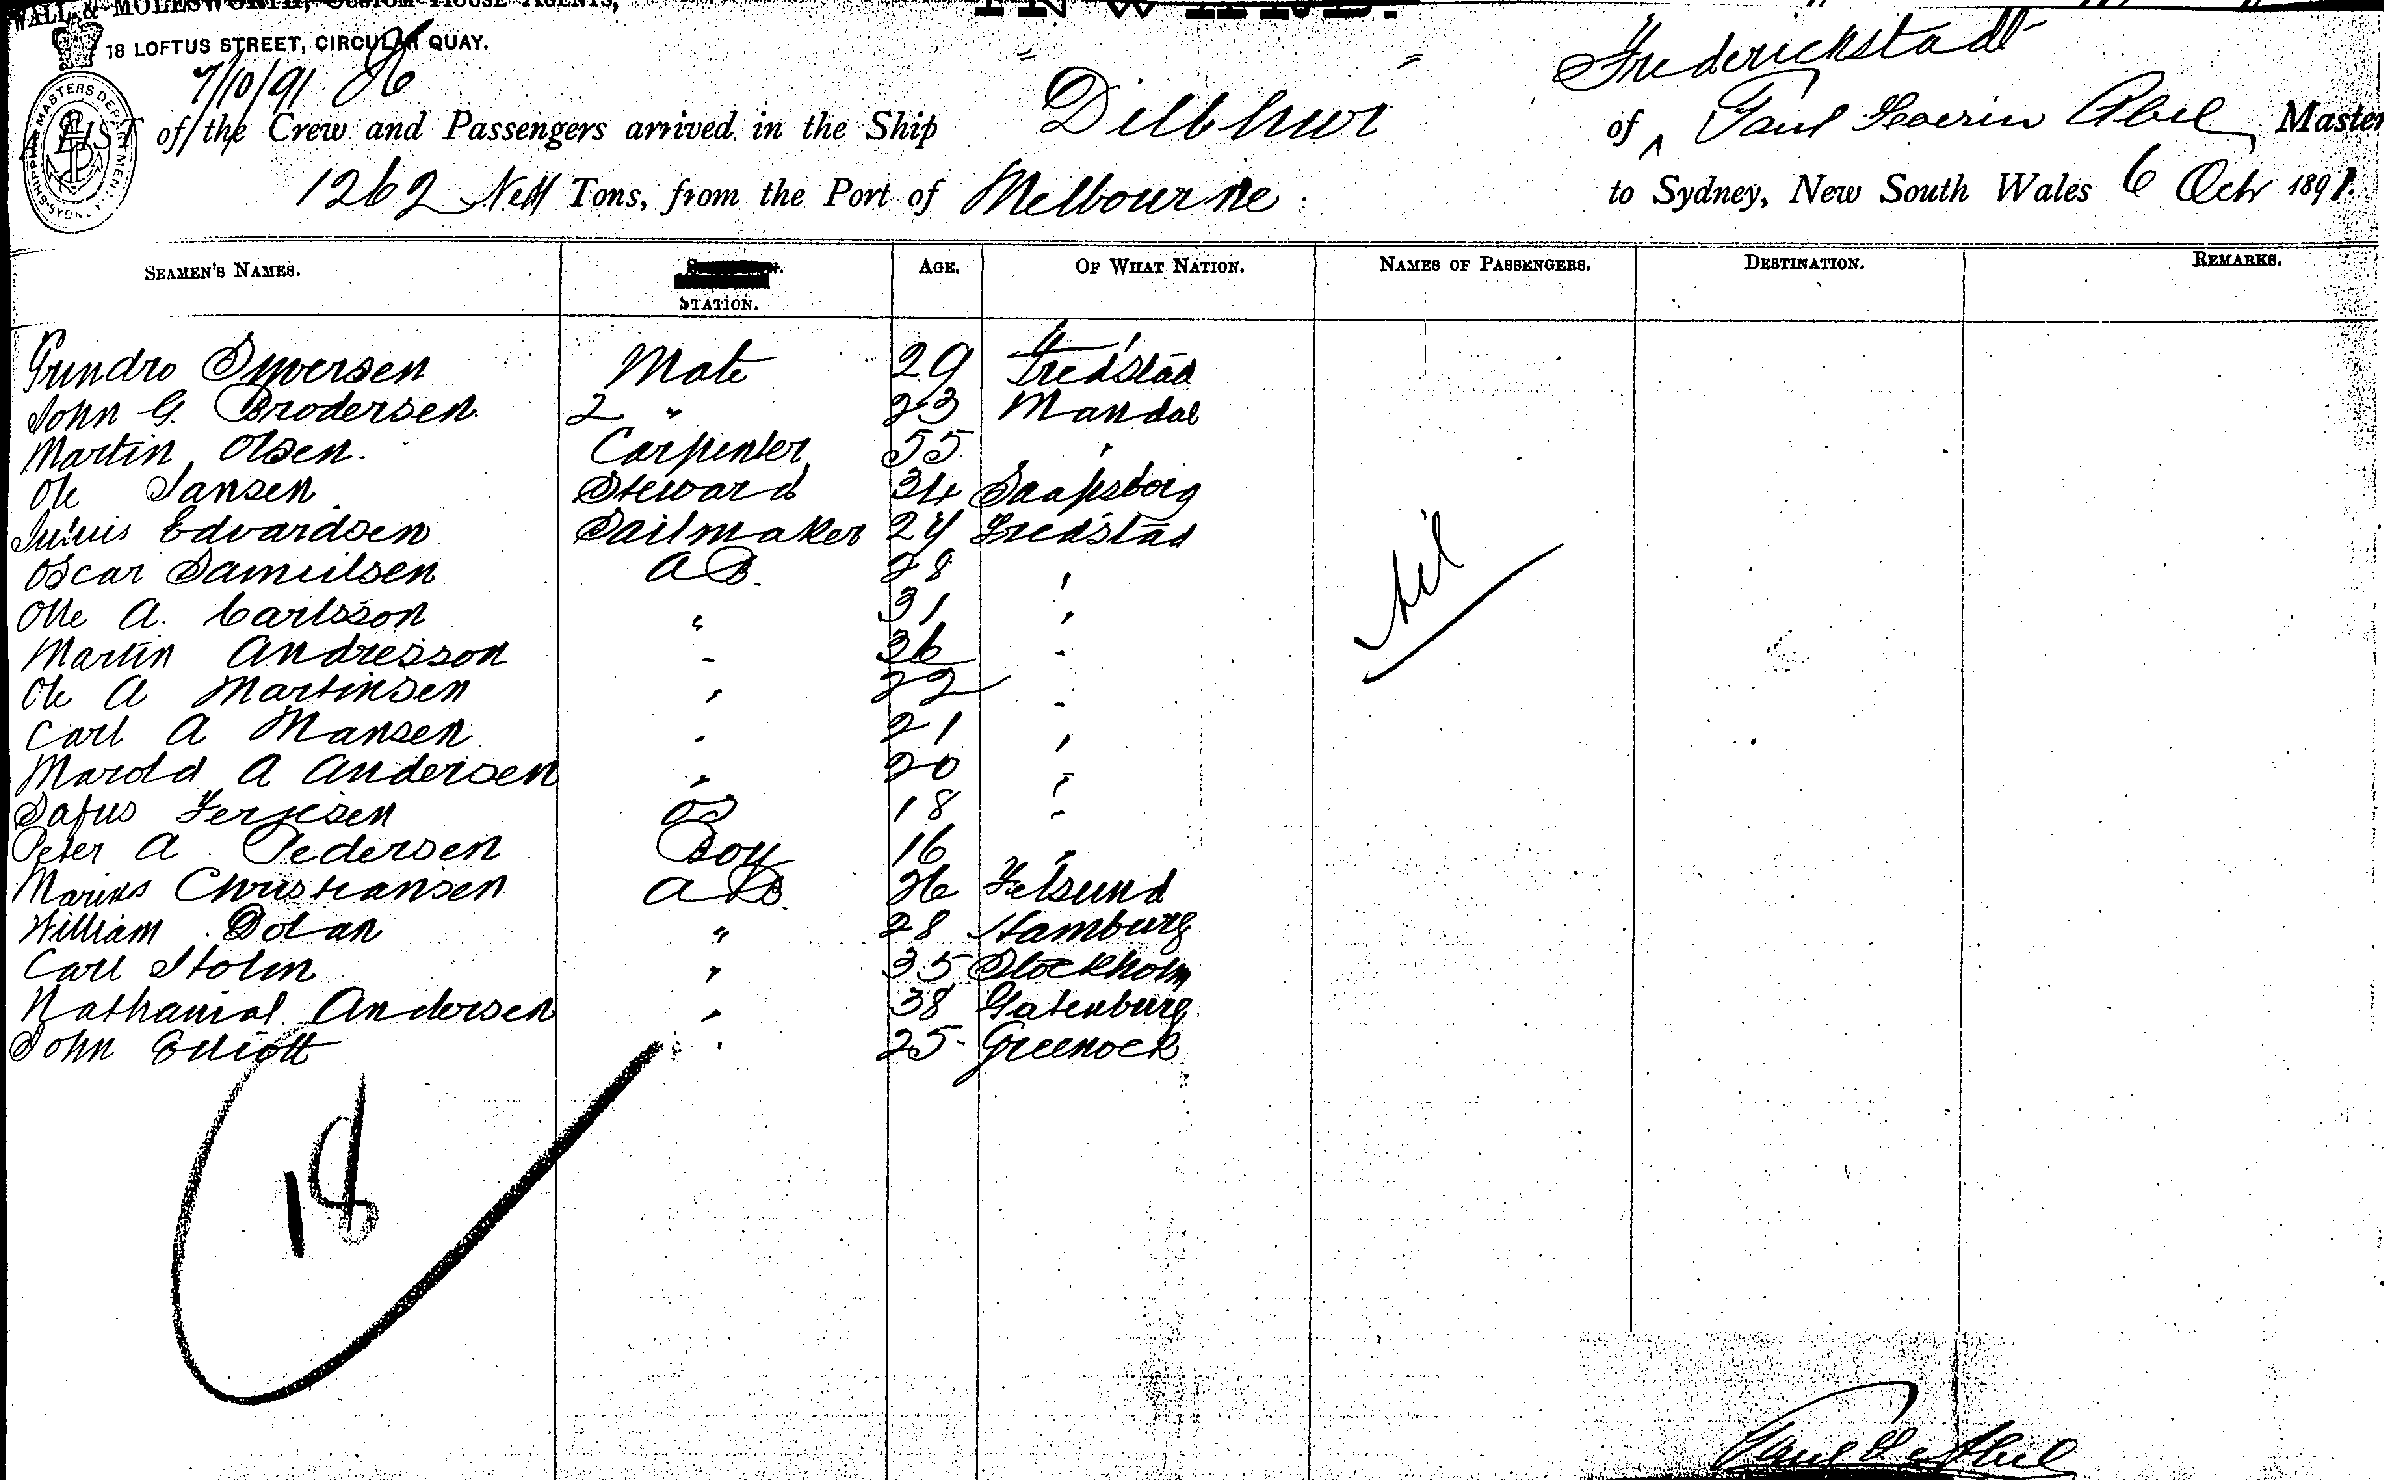 WALL & MOLESWORTH, CUSTOM HOUSE AGENTS,
18 LOFTUS STREET, CIRCULAR QUAY.
INWARD.
7/10/91
Frederickstadt
A LIST of the Crew and Passengers arrived in the Ship Dilbhur of Paul Severin Abel, Master
1262 Nett Tons, from the Port of Melbourne to Sydney, New South Wales 6 Octr 1891.
SEAMEN'S NAMES. STATION. AGE. OF WHAT NATION. NAMES OF PASSENGERS. DESTINATION. REMARKS.
Gundro Syversen Mate 29 Fredstad
John G. Brodersen 2 " 23 Mandal
Martin Olsen. Carpenter 55 "
Ole Jansen Steward 34 Saapsborg
Julius Edvardsen Sailmaker 24 Fredstad
Oscar Samuelsen AB. 28 "
Olle A. Carlsson " 31 "
Martin Andresson " 36 "
Ole A Martinsen " 22 "
Carl A Hansen " 21 "
Harold A Andersen " 20 "
Terjesen OS 18 "
Peter A Pedersen Boy 16 "
Marius Christiansen AB. 26
William Dolan " 28 Hamburg
Carl Holm " 35 Stockholm
Nathanial Andersen " 38 Gotenburg
John Elliott " 25 Greenock
Nil
18
Paul S Abel